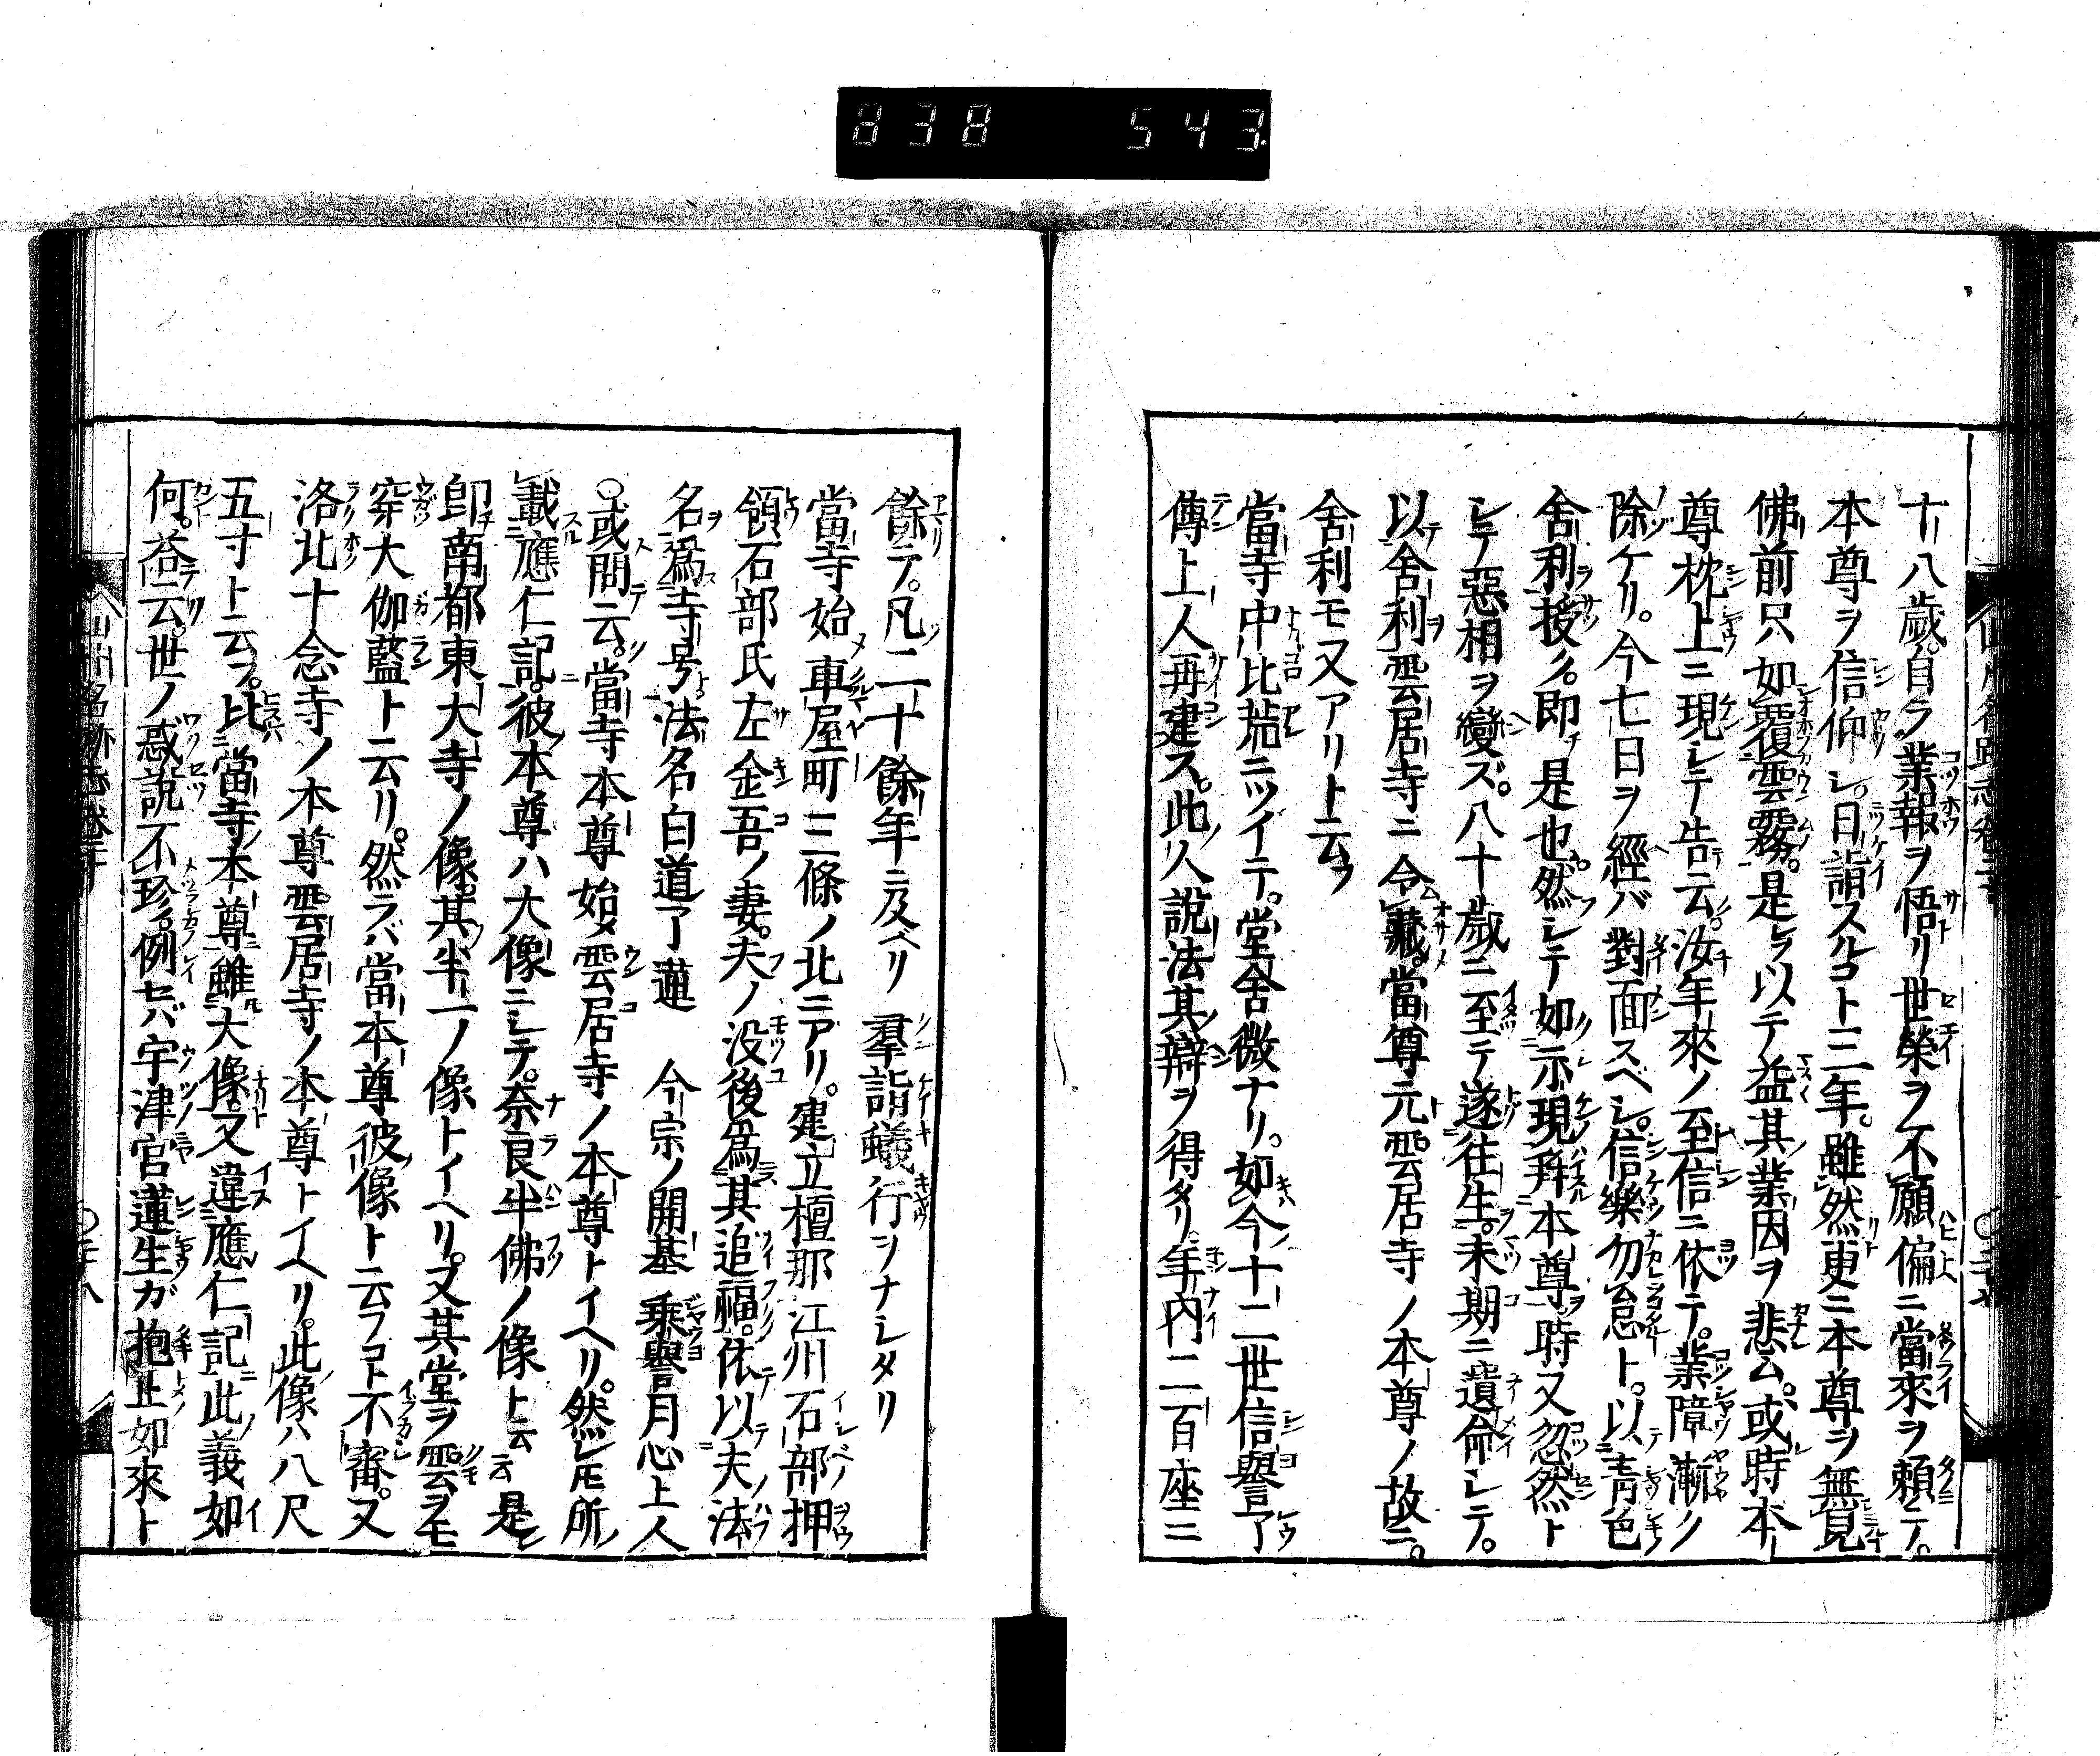 838 543
十八歳。自ラ業報ヲ悟リ世榮ヲ不願偏ニ當來ヲ頼ミテ。
本尊ヲ信仰シ。日詣スルコト三年。雖然更ニ本尊ヲ無見
佛前只如覆雲霧。是ヲ以テ益其業因ヲ悲ム。或時本
尊枕上ニ現シテ告云。汝年來ノ至信ニ依テ。業障漸ク
除ケリ。今七日ヲ經バ對面スベシ。信樂勿怠ト。以青色
舍利授ク。即是也。然シテ如示現拜本尊時又忽然ト
シテ惡相ヲ變ズ。八十歳ニ至テ遂往生。末期ニ遺命シテ。
以舍利雲居寺ニ令藏。當尊元雲居寺ノ本尊ノ故ニ。
舍利モ又アリト云フ
當寺中比荒ニツイテ。堂舍微ナリ。如今十二世信譽了
傳上人再建ス。此人説法其辯ヲ得タリ。年内二百座ニ
餘テ。凡二十餘年ニ及ベリ 羣詣蟻行ヲナシタリ
當寺始車屋町三條ノ北ニアリ。建立檀那江州石部押
領石部氏左金吾ノ妻。夫ノ没後爲其追福。依以夫法
名爲寺号法名白道了蓮 今宗ノ開基乗譽月心上人
○或問云。當寺本尊始メ雲居寺ノ本尊トイヘリ。然レ𪜈所
載應仁記。彼本尊ハ大像ニシテ。奈良半佛ノ像ト云云是
即南都東大寺ノ像。其半ノ像トイヘリ。又其堂ヲ雲ヲモ
穿大伽藍ト云リ。然ラバ當本尊彼像ト云フコト不審。又
洛北十念寺ノ本尊雲居寺ノ本尊トイヘリ。此像ハ八尺
五寸ト云フ。比當寺本尊雖大像又違應仁記此義如
何。荅云。世ノ惑説不珍。例セバ宇津宮蓮生ガ抱止如來ト